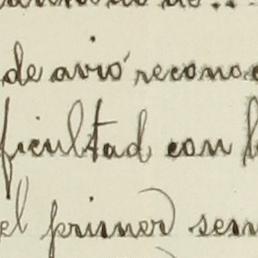 de avió recono
ficultad con l
el primer sem